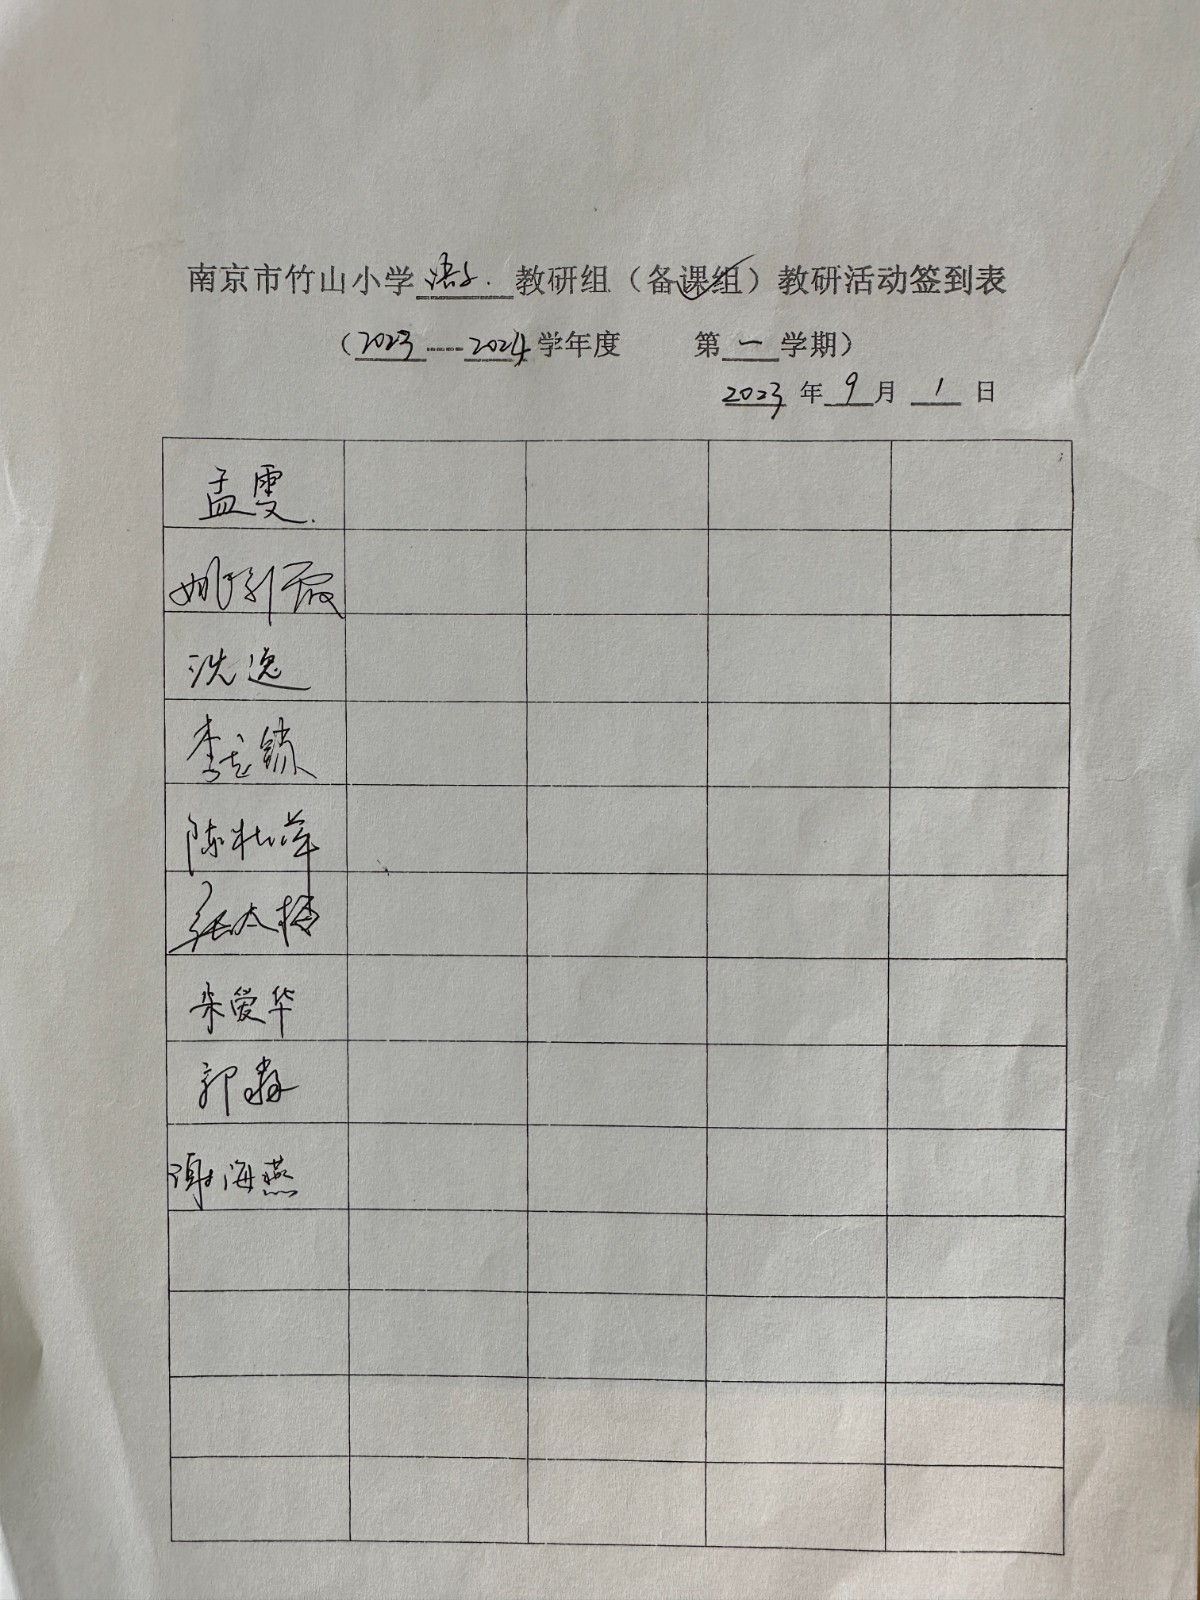 南京市竹山小学语文教研组（备课组）教研活动签到表
（2023----2024学年度 第一学期）
2023年9月1日
孟雯
姚引霞
沈逸
李志锁
陈杜萍
张太梅
朱爱华
郭
谢海燕